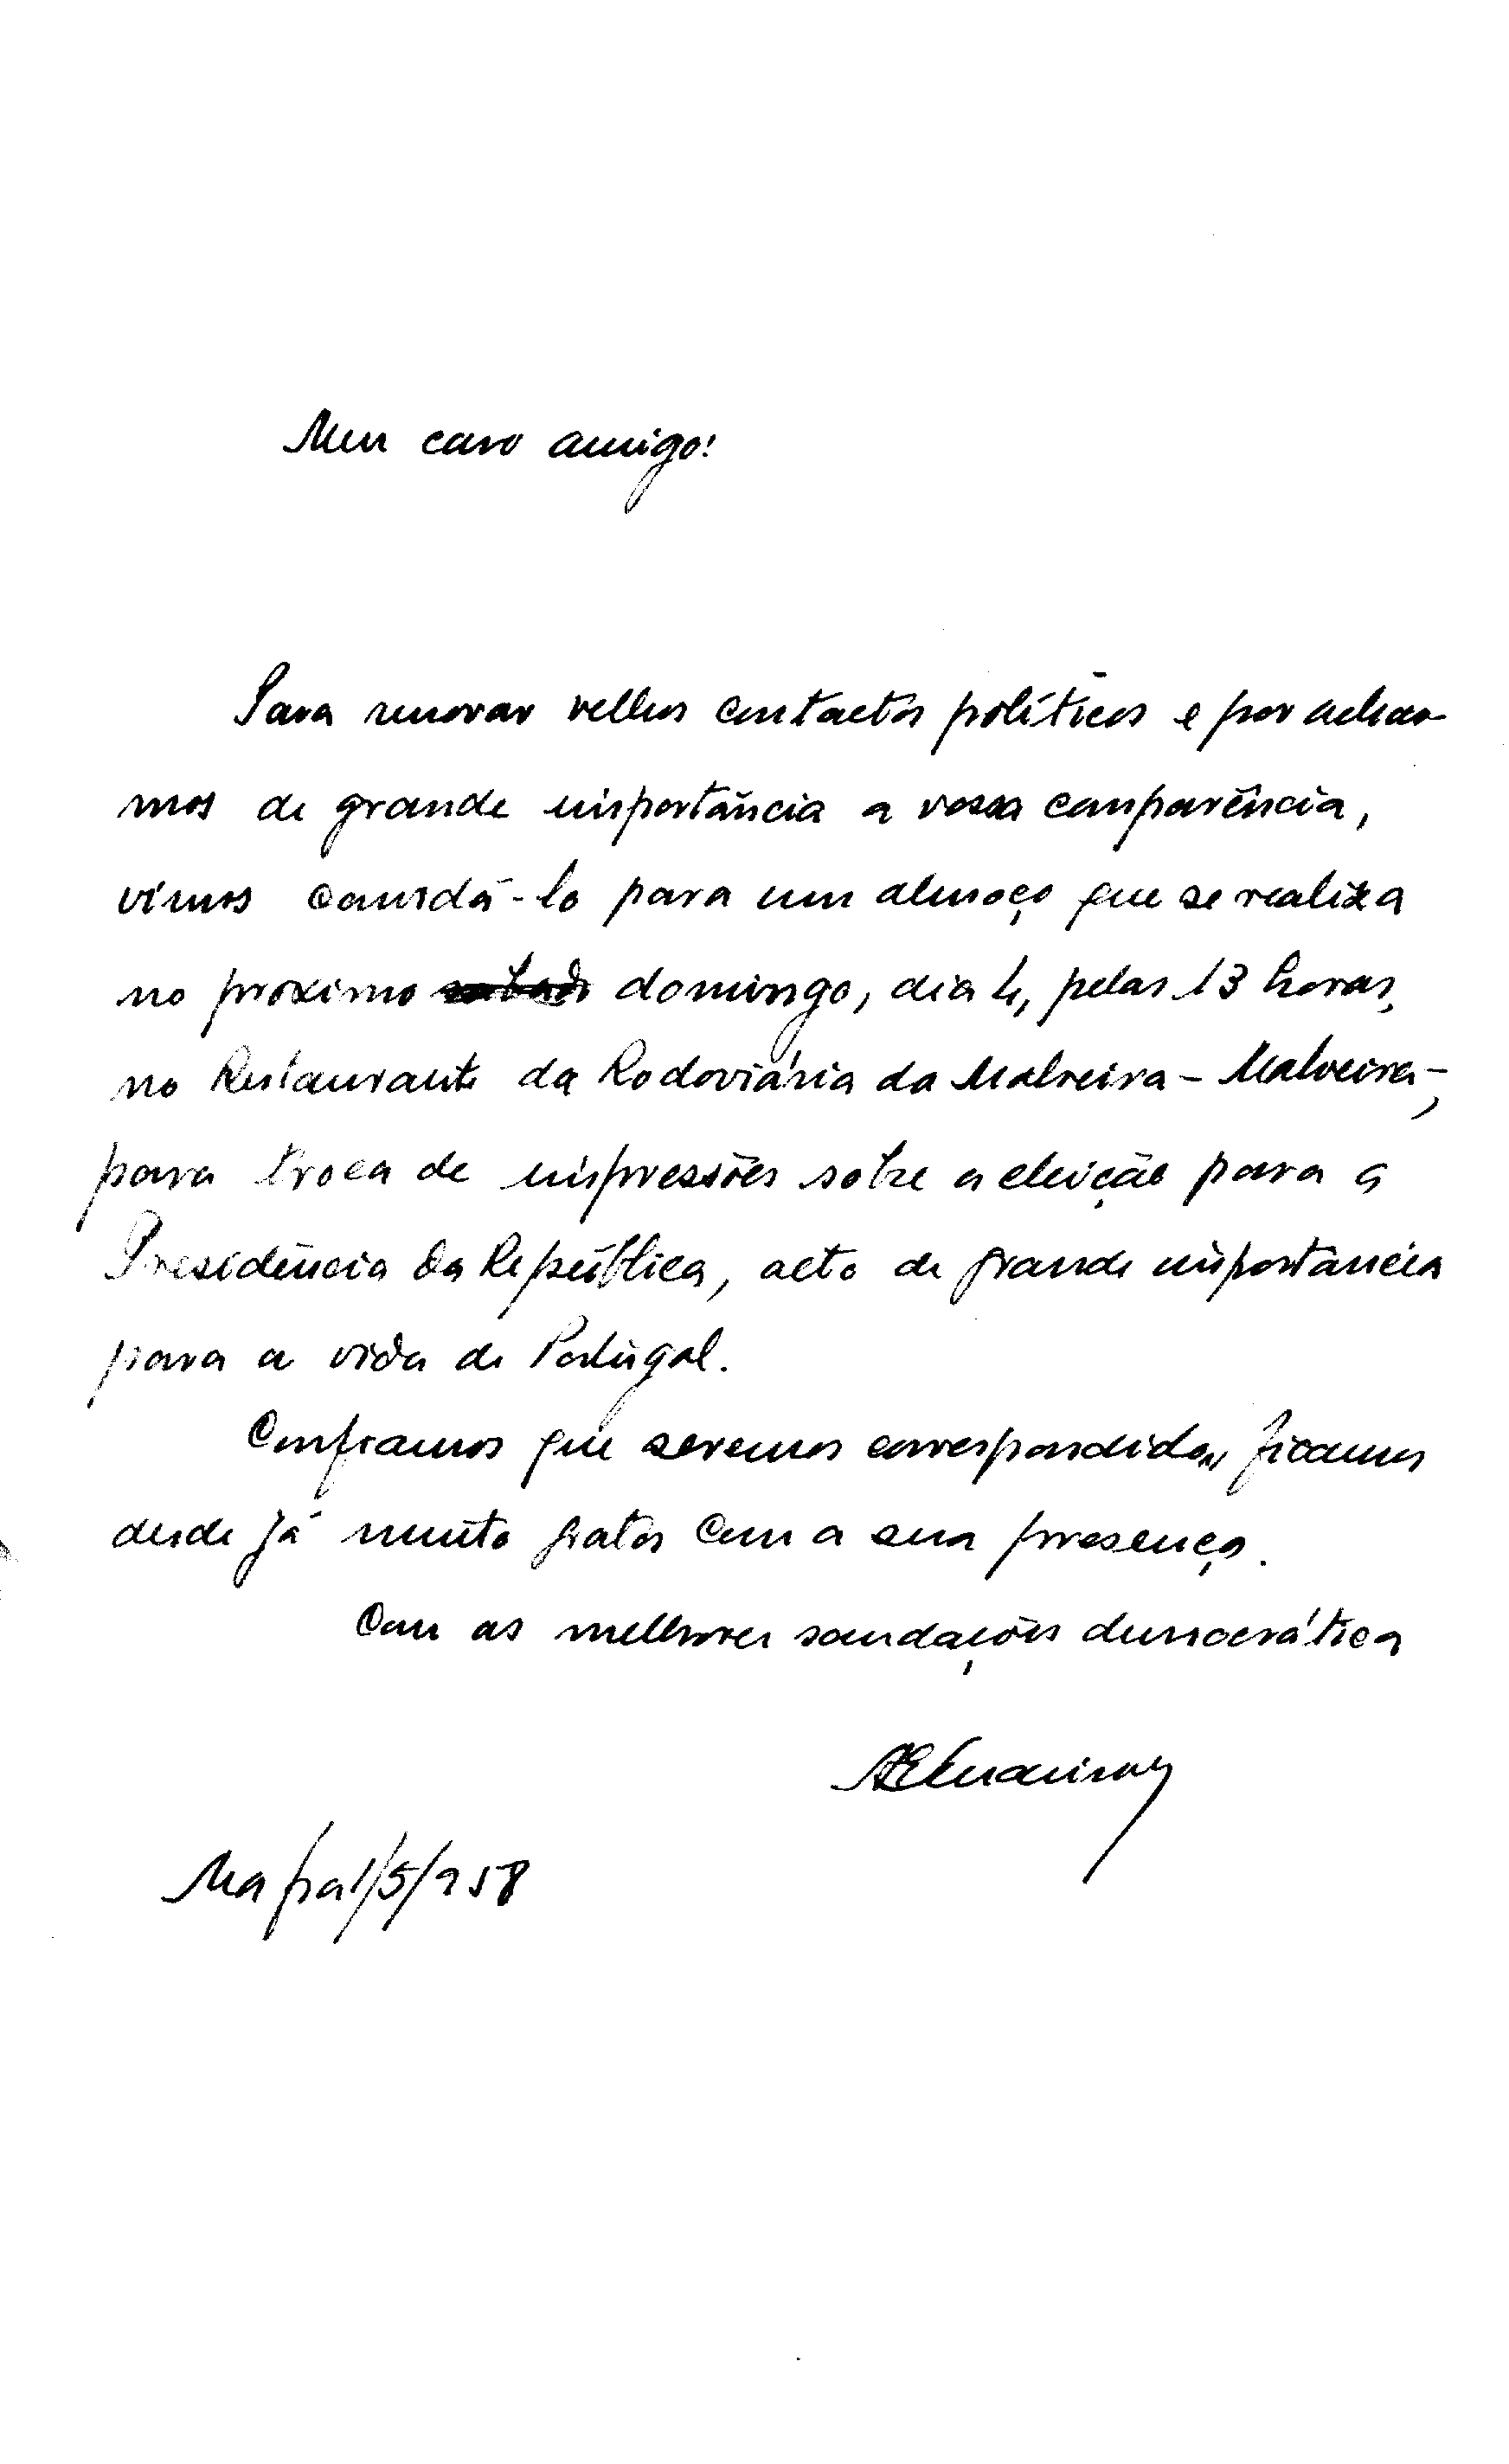 Meu caro amigo!
Para renovar velhos contactos políticos e por achar-
mos de grande importância a vossa comparência,
vimos convidá-lo para um almoço que se realiza
no proximo sabado domingo, dia 4, pelas 13 horas,
no Restaurante da Rodoviária da Malveira - Malveira -,
para troca de impressões sobre a eleição para a
Presidência da República, acto de grande importância
para a vida de Portugal.
Confiamos que seremos correspondidos, ficamos
desde já muito gratos com a sua presença.
Com as melhores saudações democrática
Mafra 1/5/958